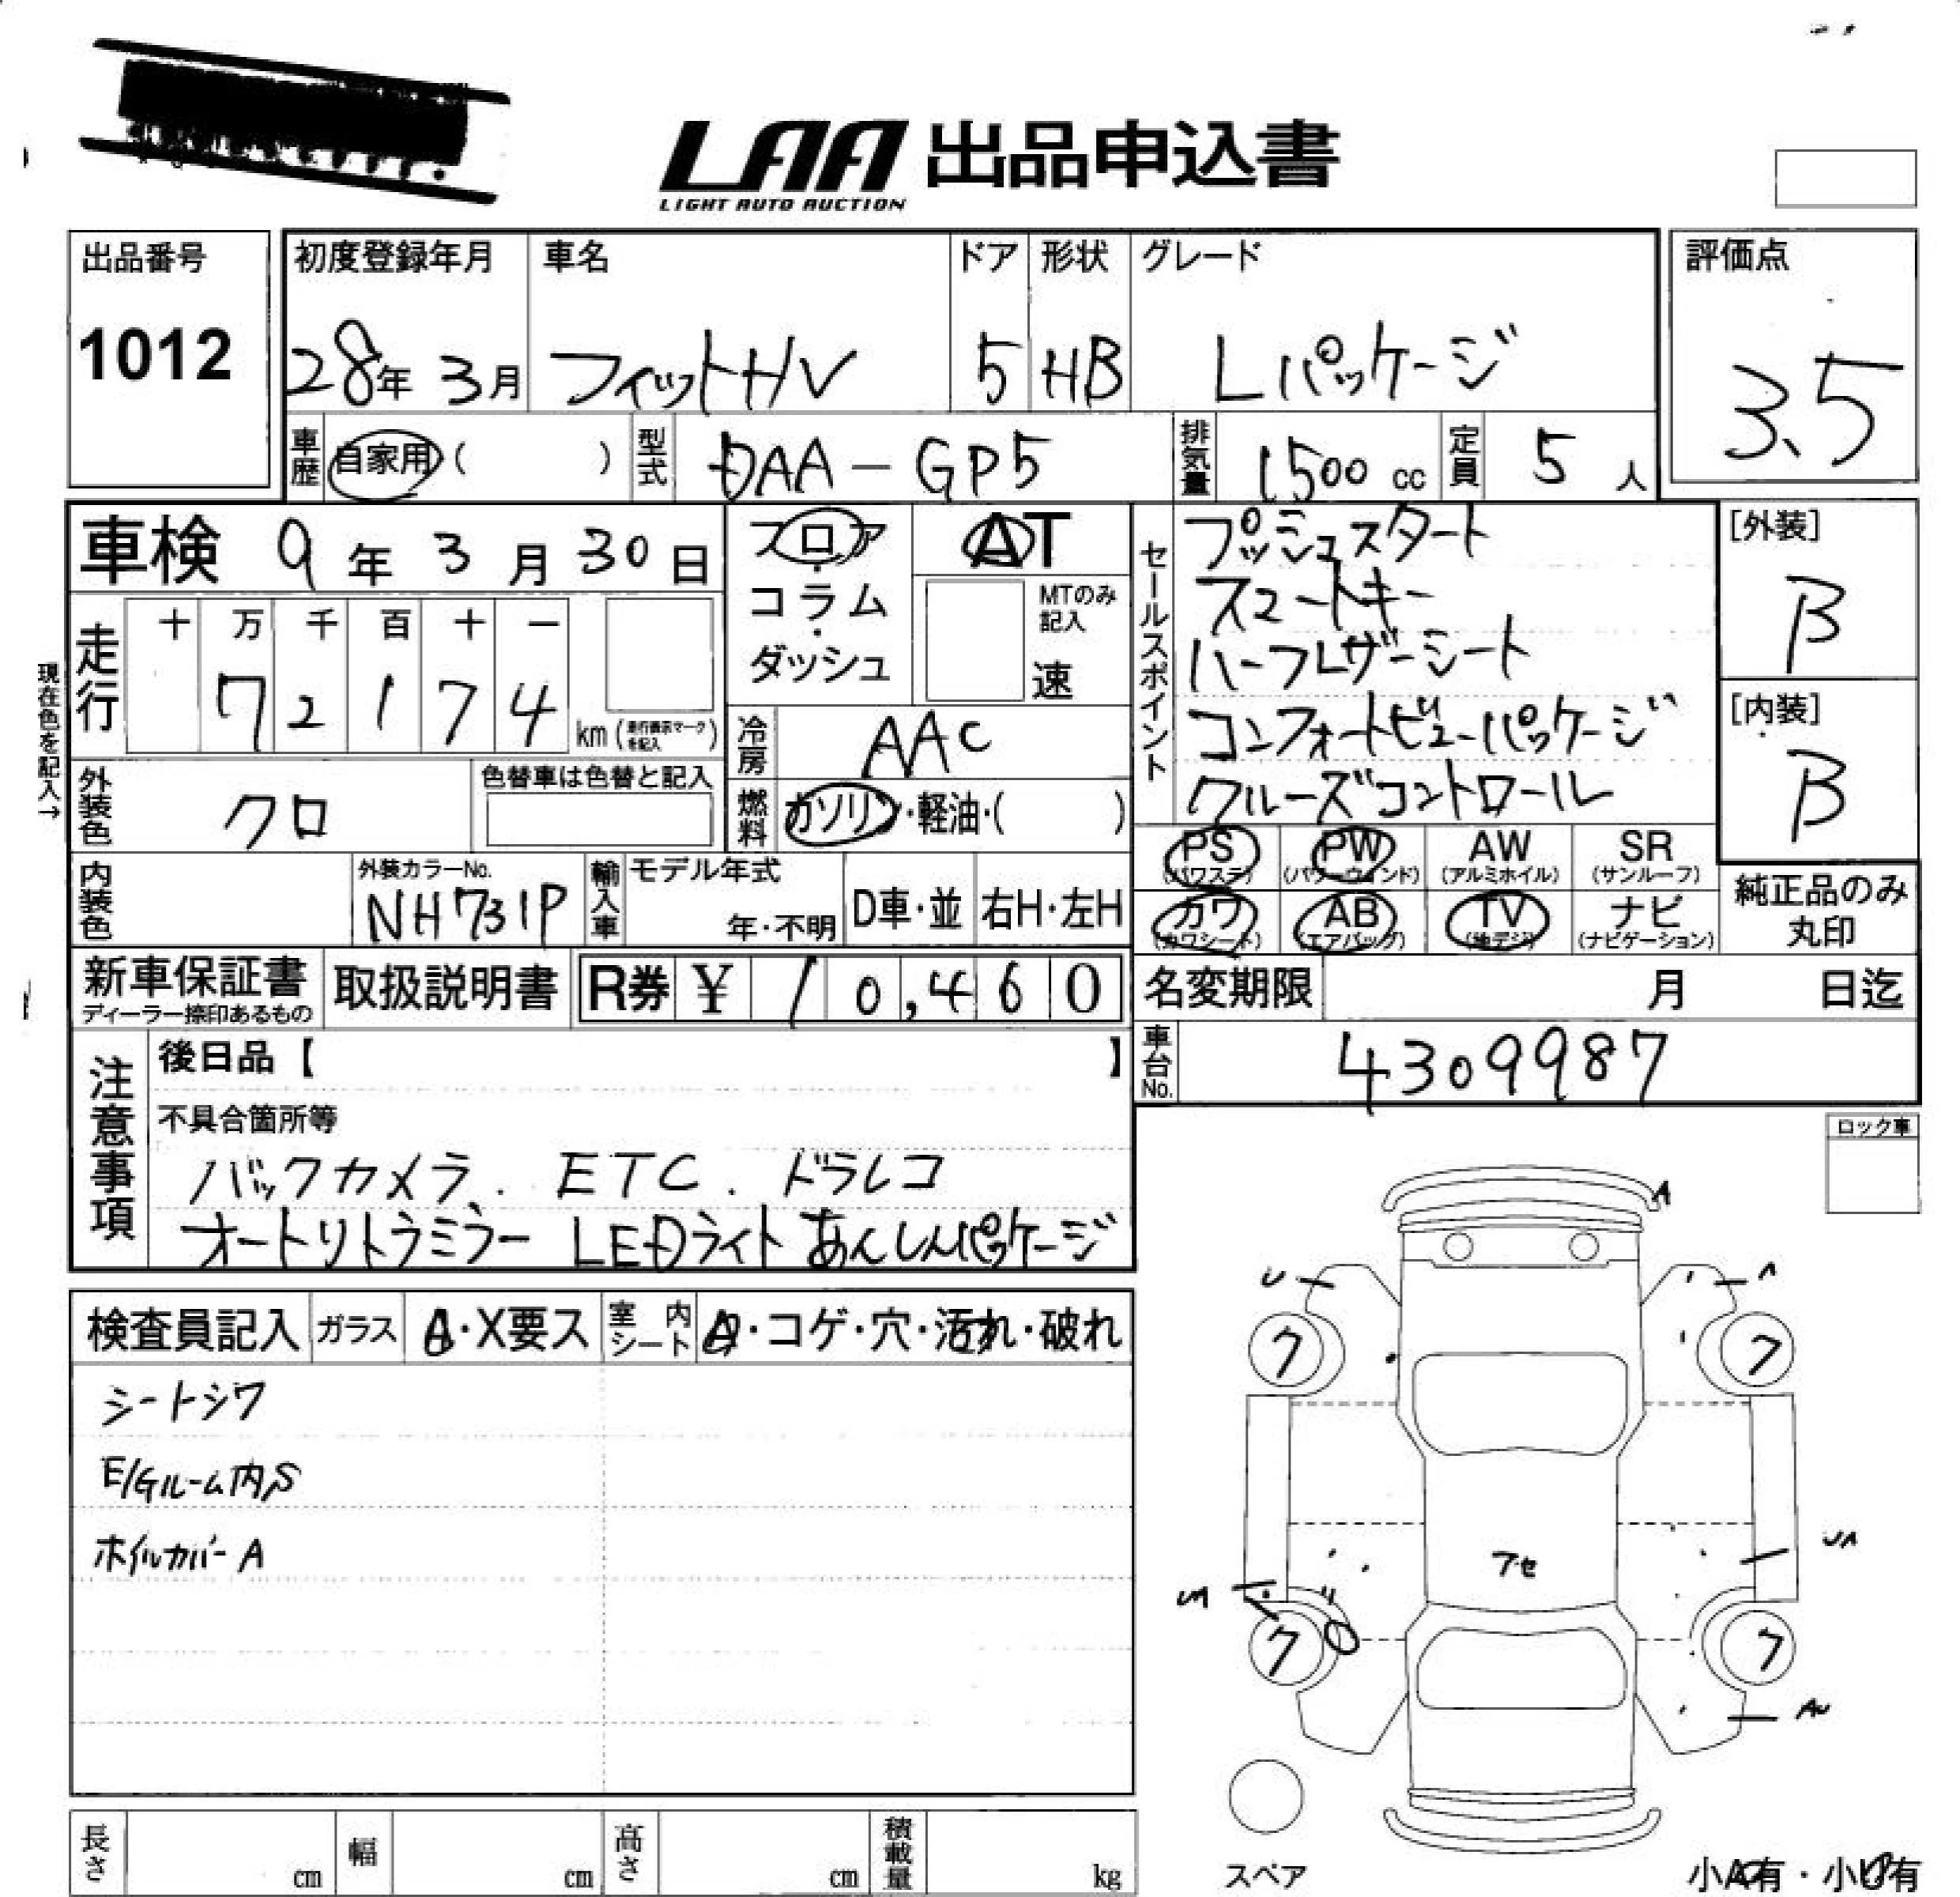 LAA 出品申込書
LIGHT AUTO AUCTION
出品番号
1012
初度登録年月 車名 ドア 形状 グレード
28年 3月 フィットHV 5 HB Lパッケージ
評価点
3.5
車歴 自家用 ( ) 型式 DAA-GP5 排気量 1500 cc 定員 5 人
車検 9 年 3 月 30 日
フロア・コラム・ダッシュ
AT
MTのみ記入
速
セールスポイント
プッシュスタート
スマートキー
ハーフレザーシート
コンフォートビューパッケージ
クルーズコントロール
[外装]
B
[内装]
B
現在色を記入→
走行 十 万 千 百 十 一
7 2 1 7 4 km (走行表示マークを記入)
冷房 AAC
外装色 クロ 色替車は色替と記入
燃料 ガソリン・軽油・( )
PS (パワステ) PW (パワーウィンド) AW (アルミホイル) SR (サンルーフ)
カワ (カワシート) AB (エアバッグ) TV (地デジ) ナビ (ナビゲーション)
純正品のみ丸印
内装色 外装カラーNo. NH731P 輸入車 モデル年式 年・不明 D車・並 右H・左H
新車保証書 ディーラー捺印あるもの 取扱説明書 R券 ¥ 10,460
名変期限 月 日迄
車台No. 4309987
注意事項
後日品【 】
不具合箇所等
バックカメラ. ETC. ドラレコ
オートリトラミラー LEDライト あんしんパッケージ
ロック車
検査員記入 ガラス A・X要ス 室内シート ・コゲ・穴・汚れ・破れ
シートシワ
E/Gルーム内S
ホイルカバーA
A
U A
ク ク
フセ
UA
ク ク
AU
スペア
小A有・小U有
長さ cm 幅 cm 高さ cm 積載量 kg